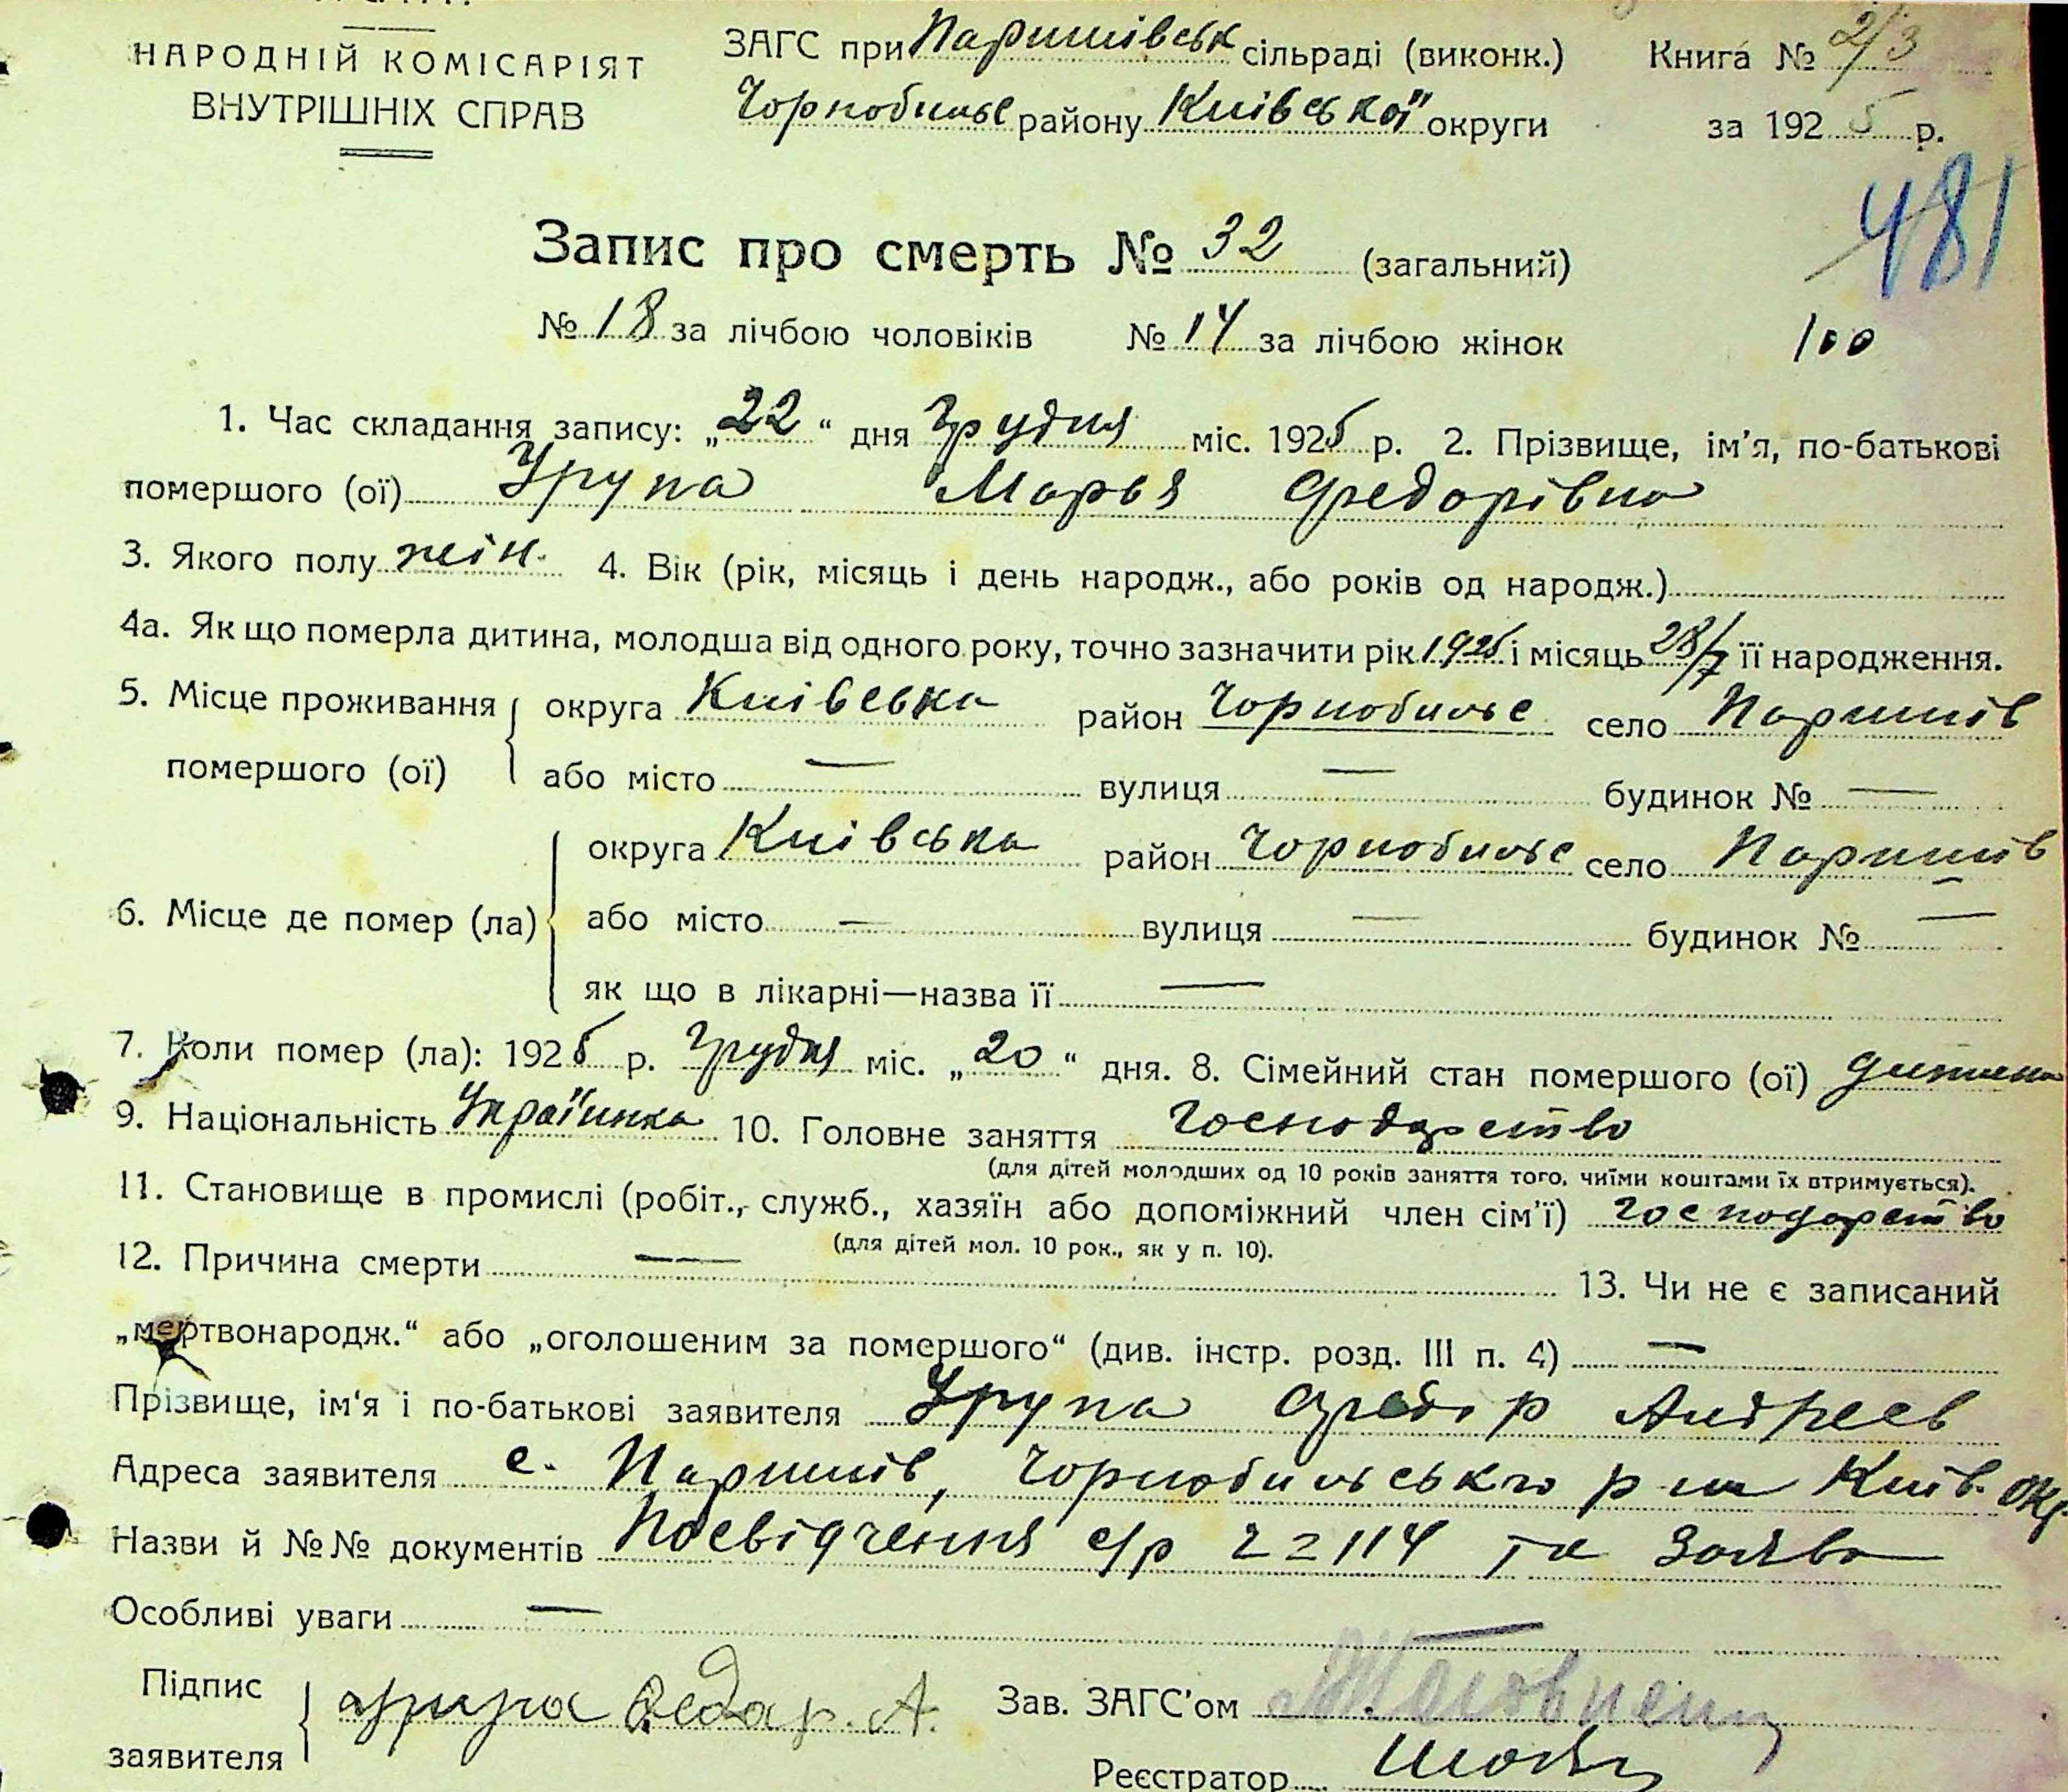 НАРОДНІЙ КОМІСАРІЯТ
ВНУТРІШНІХ СПРАВ
ЗАГС при Паришівськ сільраді (виконк.)
Чорнобильс району Київської округи
Книга № 2/3
за 1925 р.
481
Запис про смерть № 32 (загальний)
№ 18 за лічбою чоловіків № 14 за лічбою жінок
100
1. Час складання запису: „22“ дня Грудня міс. 1925 р. 2. Прізвище, ім'я, по-батькові
помершого (ої) Група Марья Федорівна
3. Якого полу жін. 4. Вік (рік, місяць і день народж., або років од народж.)
4а. Як що померла дитина, молодша від одного року, точно зазначити рік 1925 і місяць 28/7 її народження.
5. Місце проживання помершого (ої) округа Київська район Чорнобильс село Паришів
або місто — вулиця — будинок № —
6. Місце де помер (ла) округа Київська район Чорнобильс село Паришів
або місто — вулиця — будинок № —
як що в лікарні—назва її —
7. Коли помер (ла): 1925 р. Грудня міс. „20“ дня. 8. Сімейний стан помершого (ої) дитина
9. Національність Українка 10. Головне заняття господарство
(для дітей молодших од 10 років заняття того, чиїми коштами їх втримується).
11. Становище в промислі (робіт., служб., хазяїн або допоміжний член сім'ї) господарство
(для дітей мол. 10 рок., як у п. 10).
12. Причина смерти — 13. Чи не є записаний
„мертвонародж.“ або „оголошеним за помершого“ (див. інстр. розд. III п. 4) —
Прізвище, ім'я і по-батькові заявителя Група Федір Андреев
Адреса заявителя с. Паришів, Чорнобильського р-ну Київ. окр.
Назви й №№ документів Посвідчення с/р 22114 та Заява
Особливі уваги —
Підпис заявителя Федар. А.
Зав. ЗАГС'ом
Реєстратор